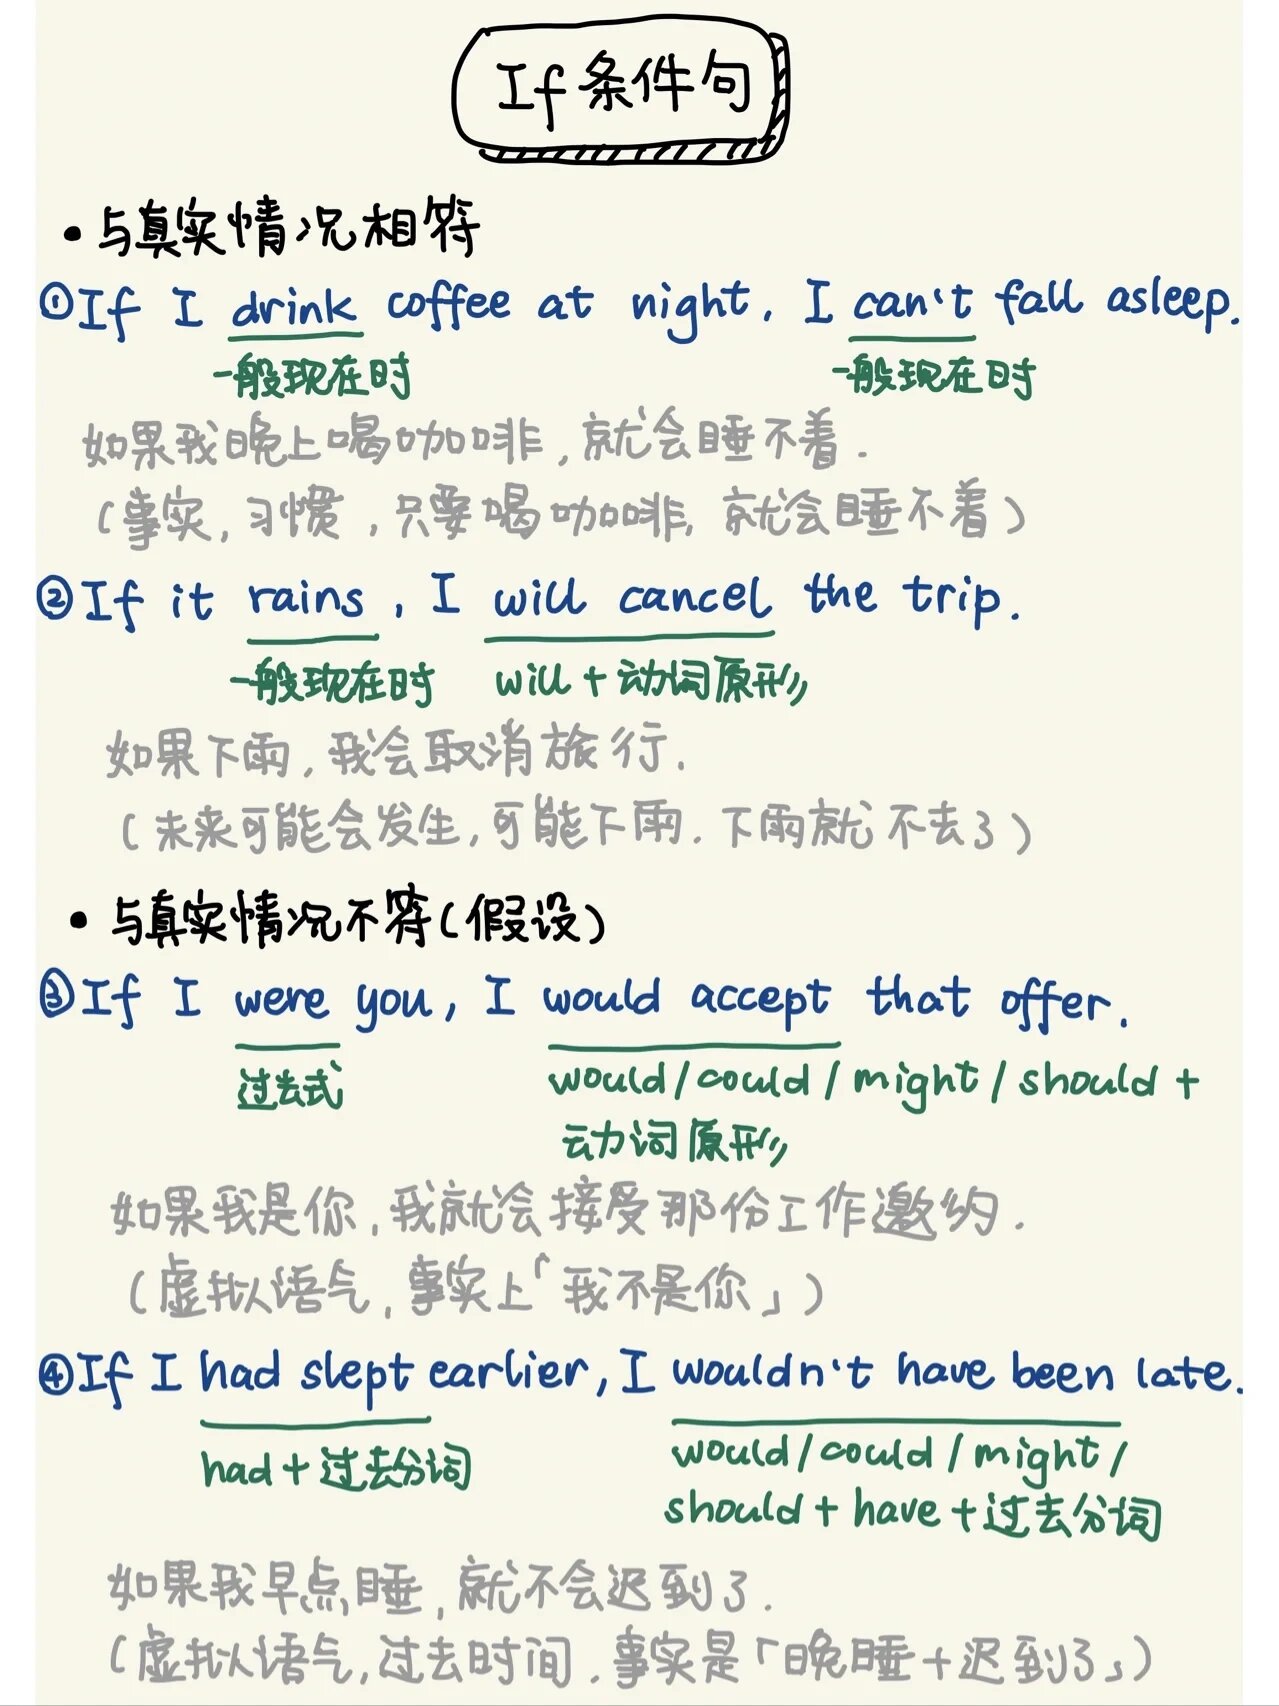 If条件句
• 与真实情况相符
①If I drink coffee at night, I can't fall asleep.
一般现在时 一般现在时
如果我晚上喝咖啡,就会睡不着.
(事实,习惯,只要喝咖啡,就会睡不着)
②If it rains, I will cancel the trip.
一般现在时 will+动词原形
如果下雨,我会取消旅行.
(未来可能会发生,可能下雨.下雨就不去了)
• 与真实情况不符(假设)
③If I were you, I would accept that offer.
过去式 would/could/might/should+
动词原形
如果我是你,我就会接受那份工作邀约.
(虚拟语气,事实上「我不是你」)
④If I had slept earlier, I wouldn't have been late.
had+过去分词 would/could/might/
should+have+过去分词
如果我早点睡,就不会迟到了.
(虚拟语气,过去时间.事实是「晚睡+迟到了」)